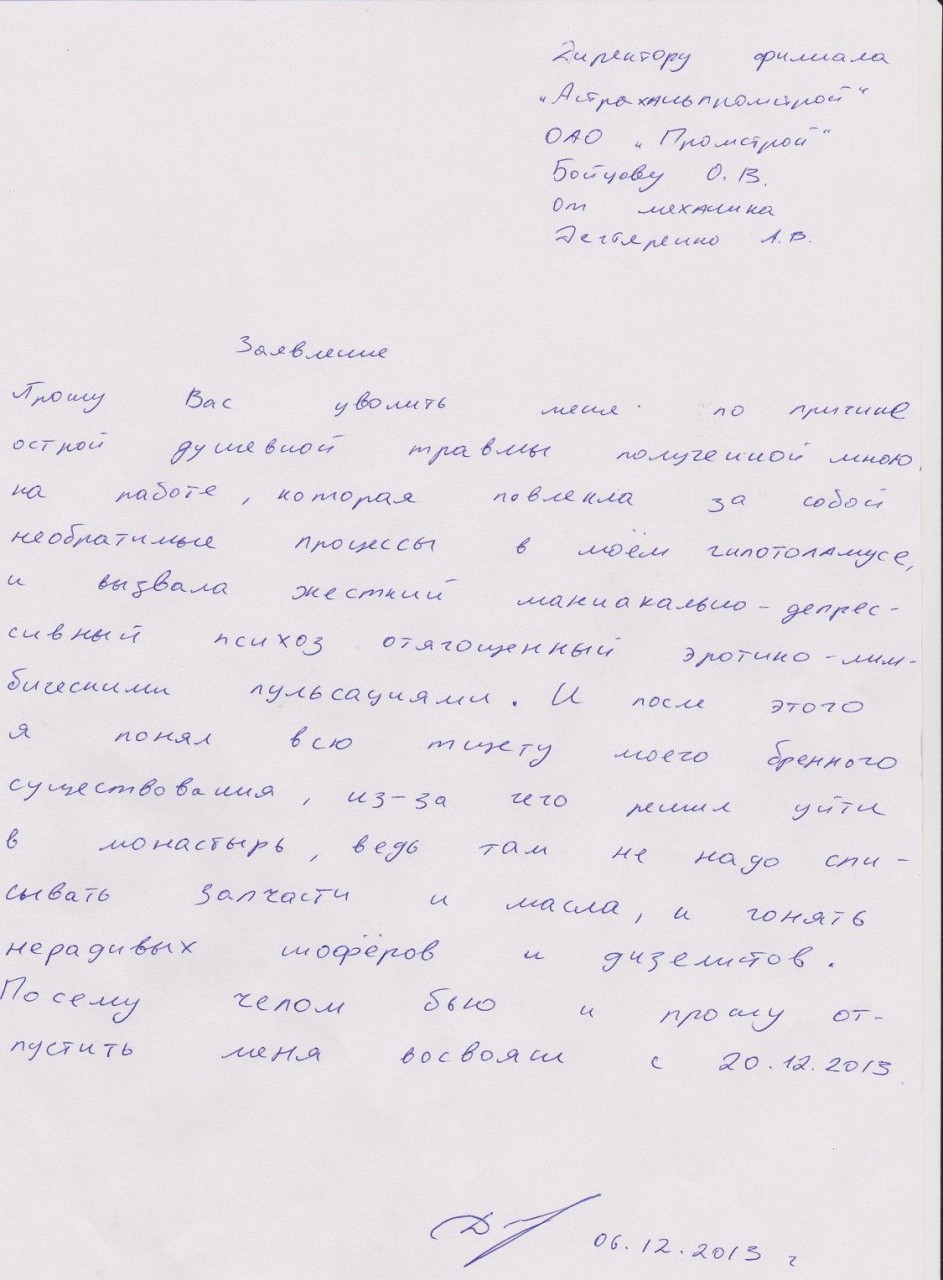 Директору филиала
"Астраханьпромстрой"
ОАО "Промстрой"
Бойцову О.В.
от механика
Дегтяренко А.В.
Заявление
Прошу Вас уволить меня по причине
острой душевной травмы полученной мною
на работе, которая повлекла за собой
необратимые процессы в моём гипотоламусе,
и вызвала жесткий маниакально-депрес-
сивный психоз отягощенный эротико-лим-
бическими пульсациями. И после этого
я понял всю тщету моего бренного
существования, из-за чего решил уйти
в монастырь, ведь там не надо спи-
сывать запчасти и масла, и гонять
нерадивых шофёров и дизелистов.
Посему челом бью и прошу от-
пустить меня восвояси с 20.12.2013
06.12.2013 г